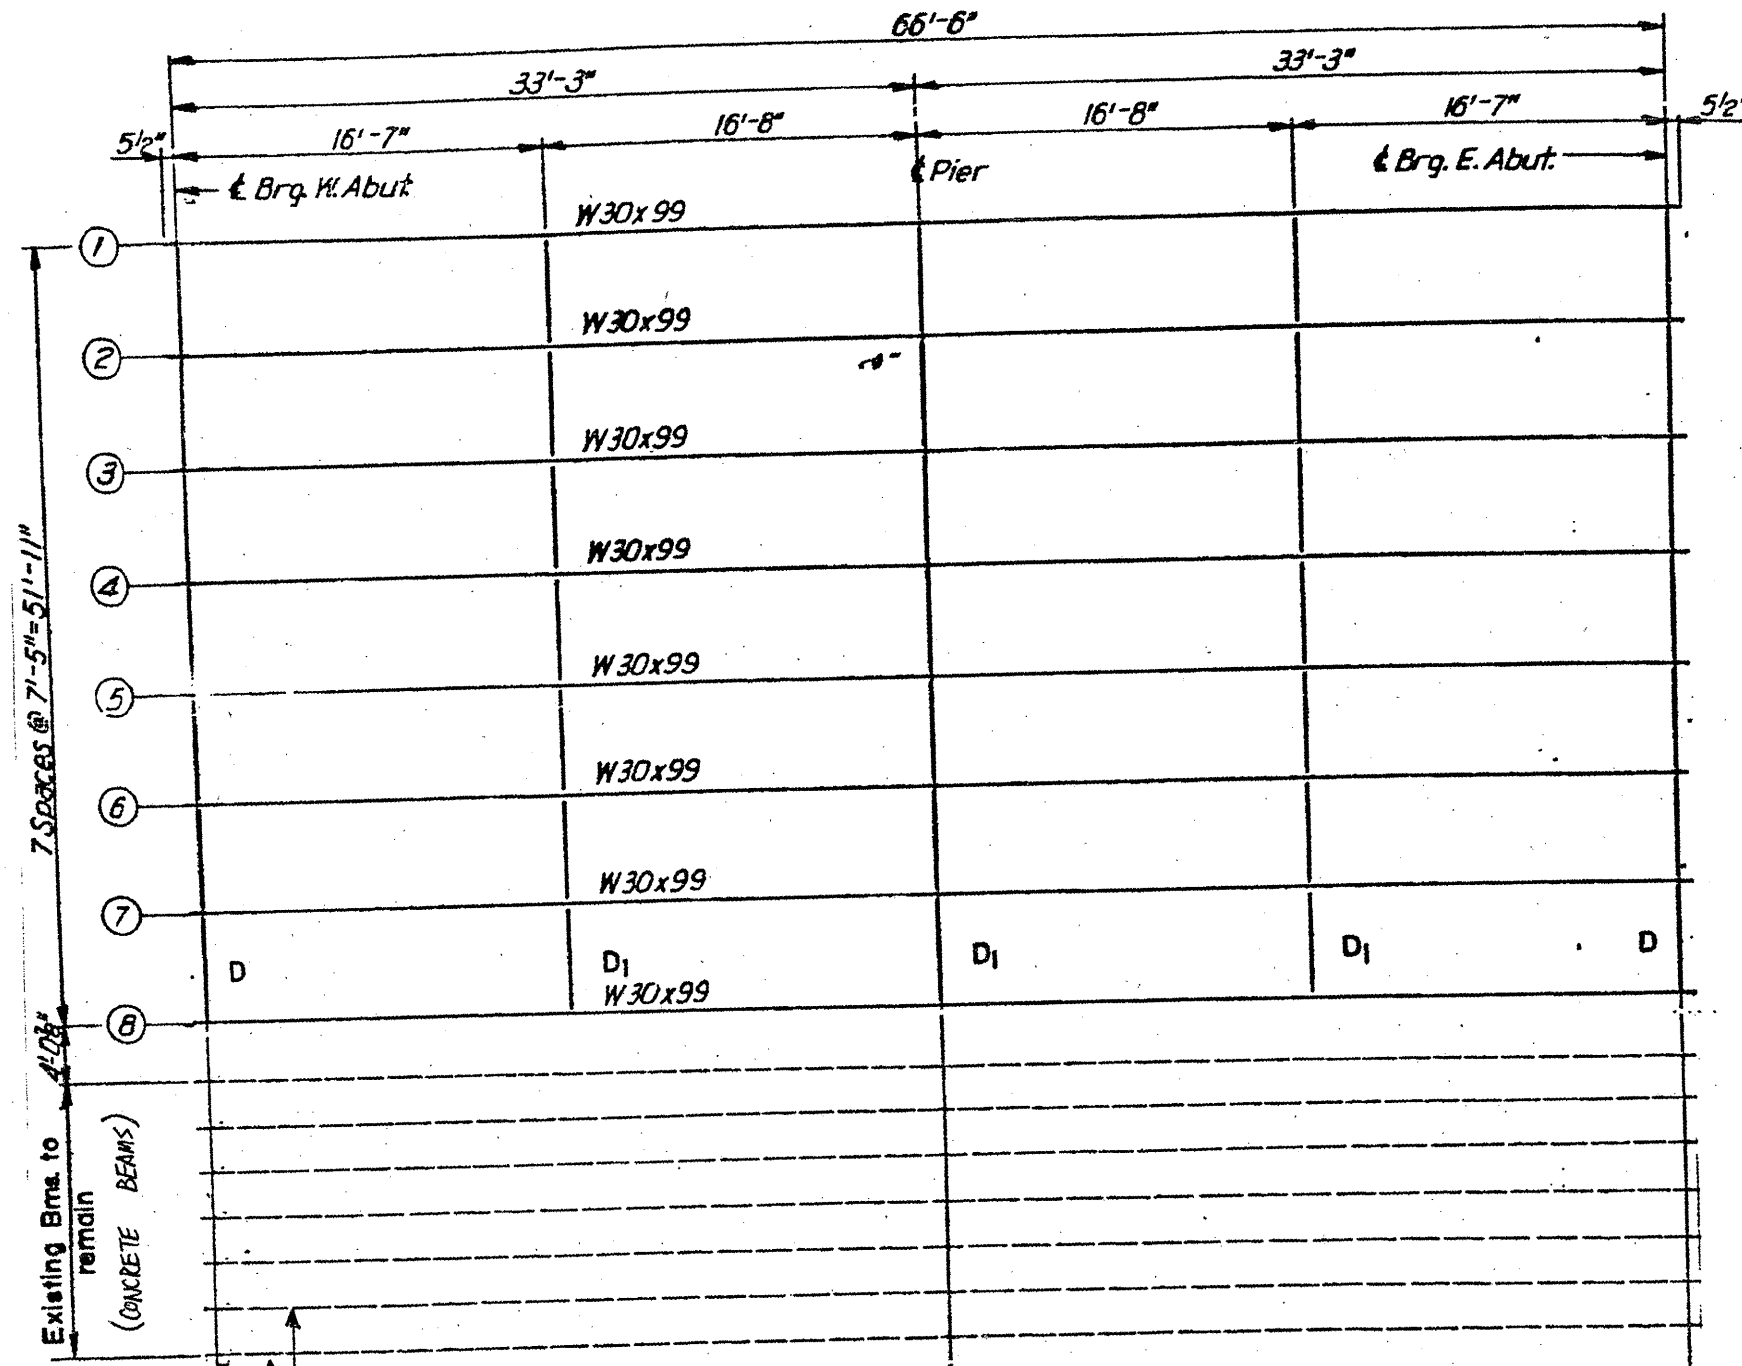 66'-6"
33'-3"
33'-3"
5½"
16'-7"
16'-8"
16'-8"
16'-7"
5½"
℄ Brg. W. Abut.
℄ Pier
℄ Brg. E. Abut.
1
W30x99
2
W30x99
3
W30x99
4
W30x99
5
W30x99
6
W30x99
7
W30x99
D
D1
D1
D1
D
W30x99
8
7 Spaces @ 7'-5"=51'-11"
Existing Bms. to
remain
(CONCRETE BEAMS)